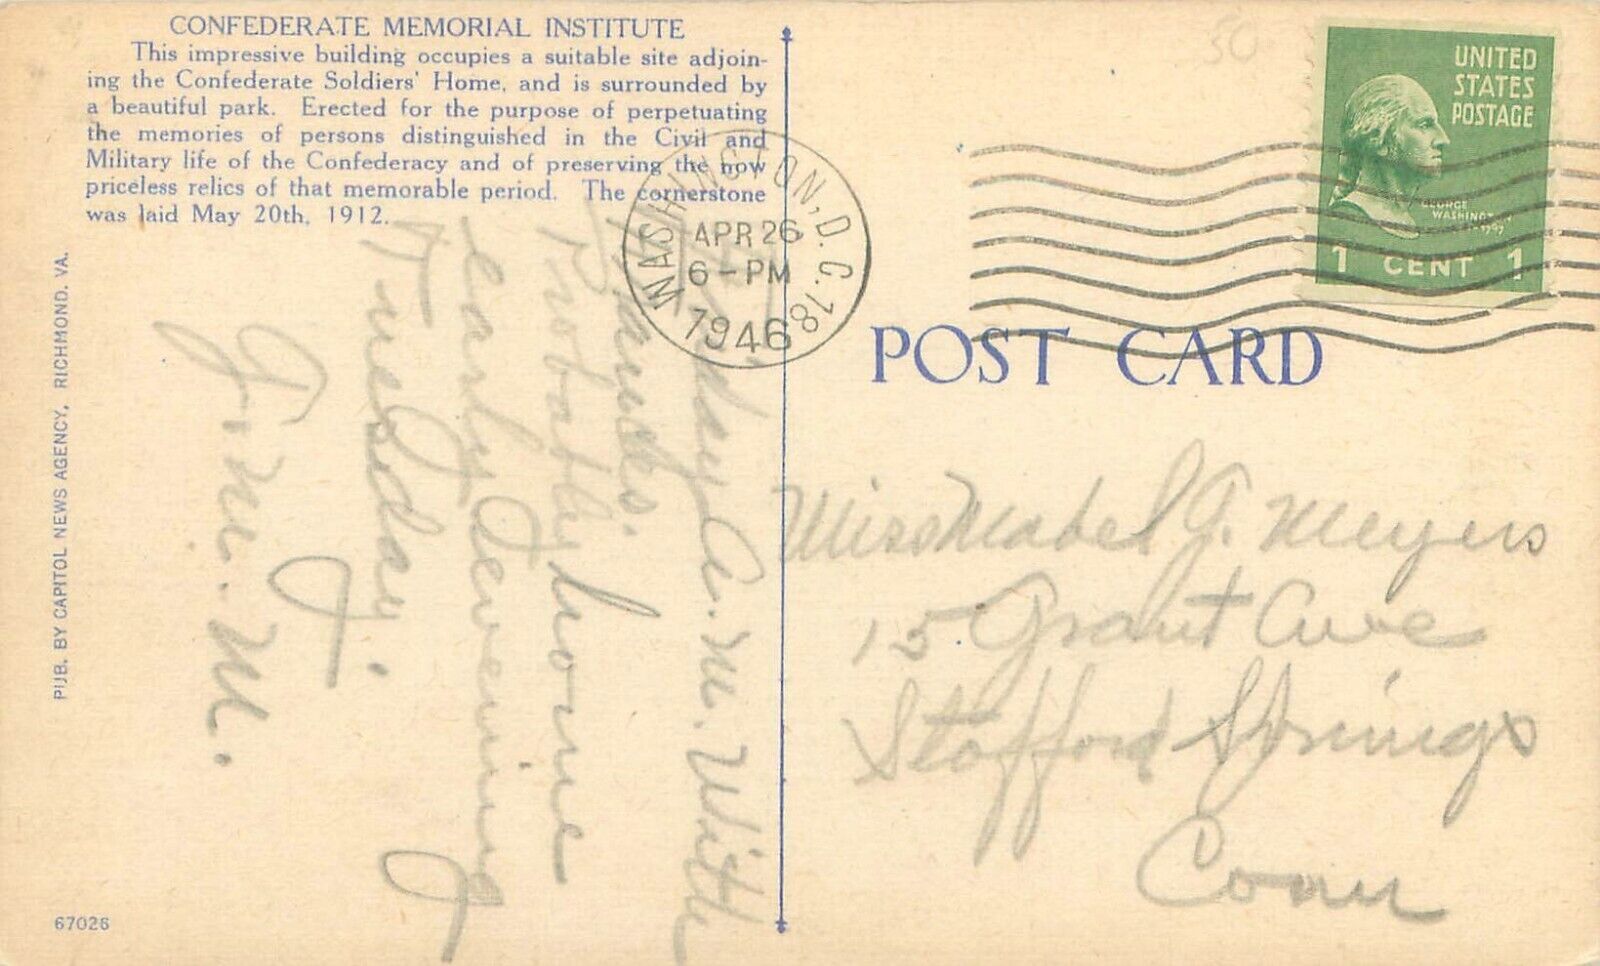 CONFEDERATE MEMORIAL INSTITUTE
This impressive building occupies a suitable site adjoin-
ing the Confederate Soldiers' Home, and is surrounded by
a beautiful park. Erected for the purpose of perpetuating
the memories of persons distinguished in the Civil and
Military life of the Confederacy and of preserving the now
priceless relics of that memorable period. The cornerstone
was laid May 20th, 1912.
PUB. BY CAPITOL NEWS AGENCY, RICHMOND, VA.
67026
Friday A.M. With
Probably home
early evening
Tuesday.
G. M. M.
WASHINGTON, D.C. 18
APR 26
6-PM
1946
50
UNITED
STATES
POSTAGE
GEORGE
WASHINGTON
1 CENT 1
POST CARD
Miss Mabel G. Meyers
15 Grant Ave
Stafford Springs
Conn